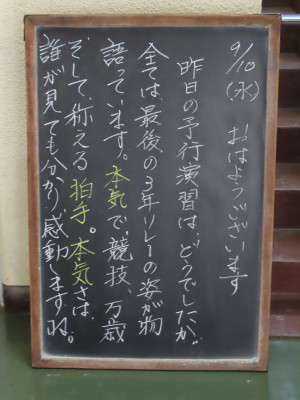 9/10(水) おはようございます
昨日の予行演習は、どうでしたか。
全ては、最後の3年リレーの姿が物
語っています。本気で、競技、万歳
そして、称える拍手。本気さは、
誰が見ても分かり、感動しますね。